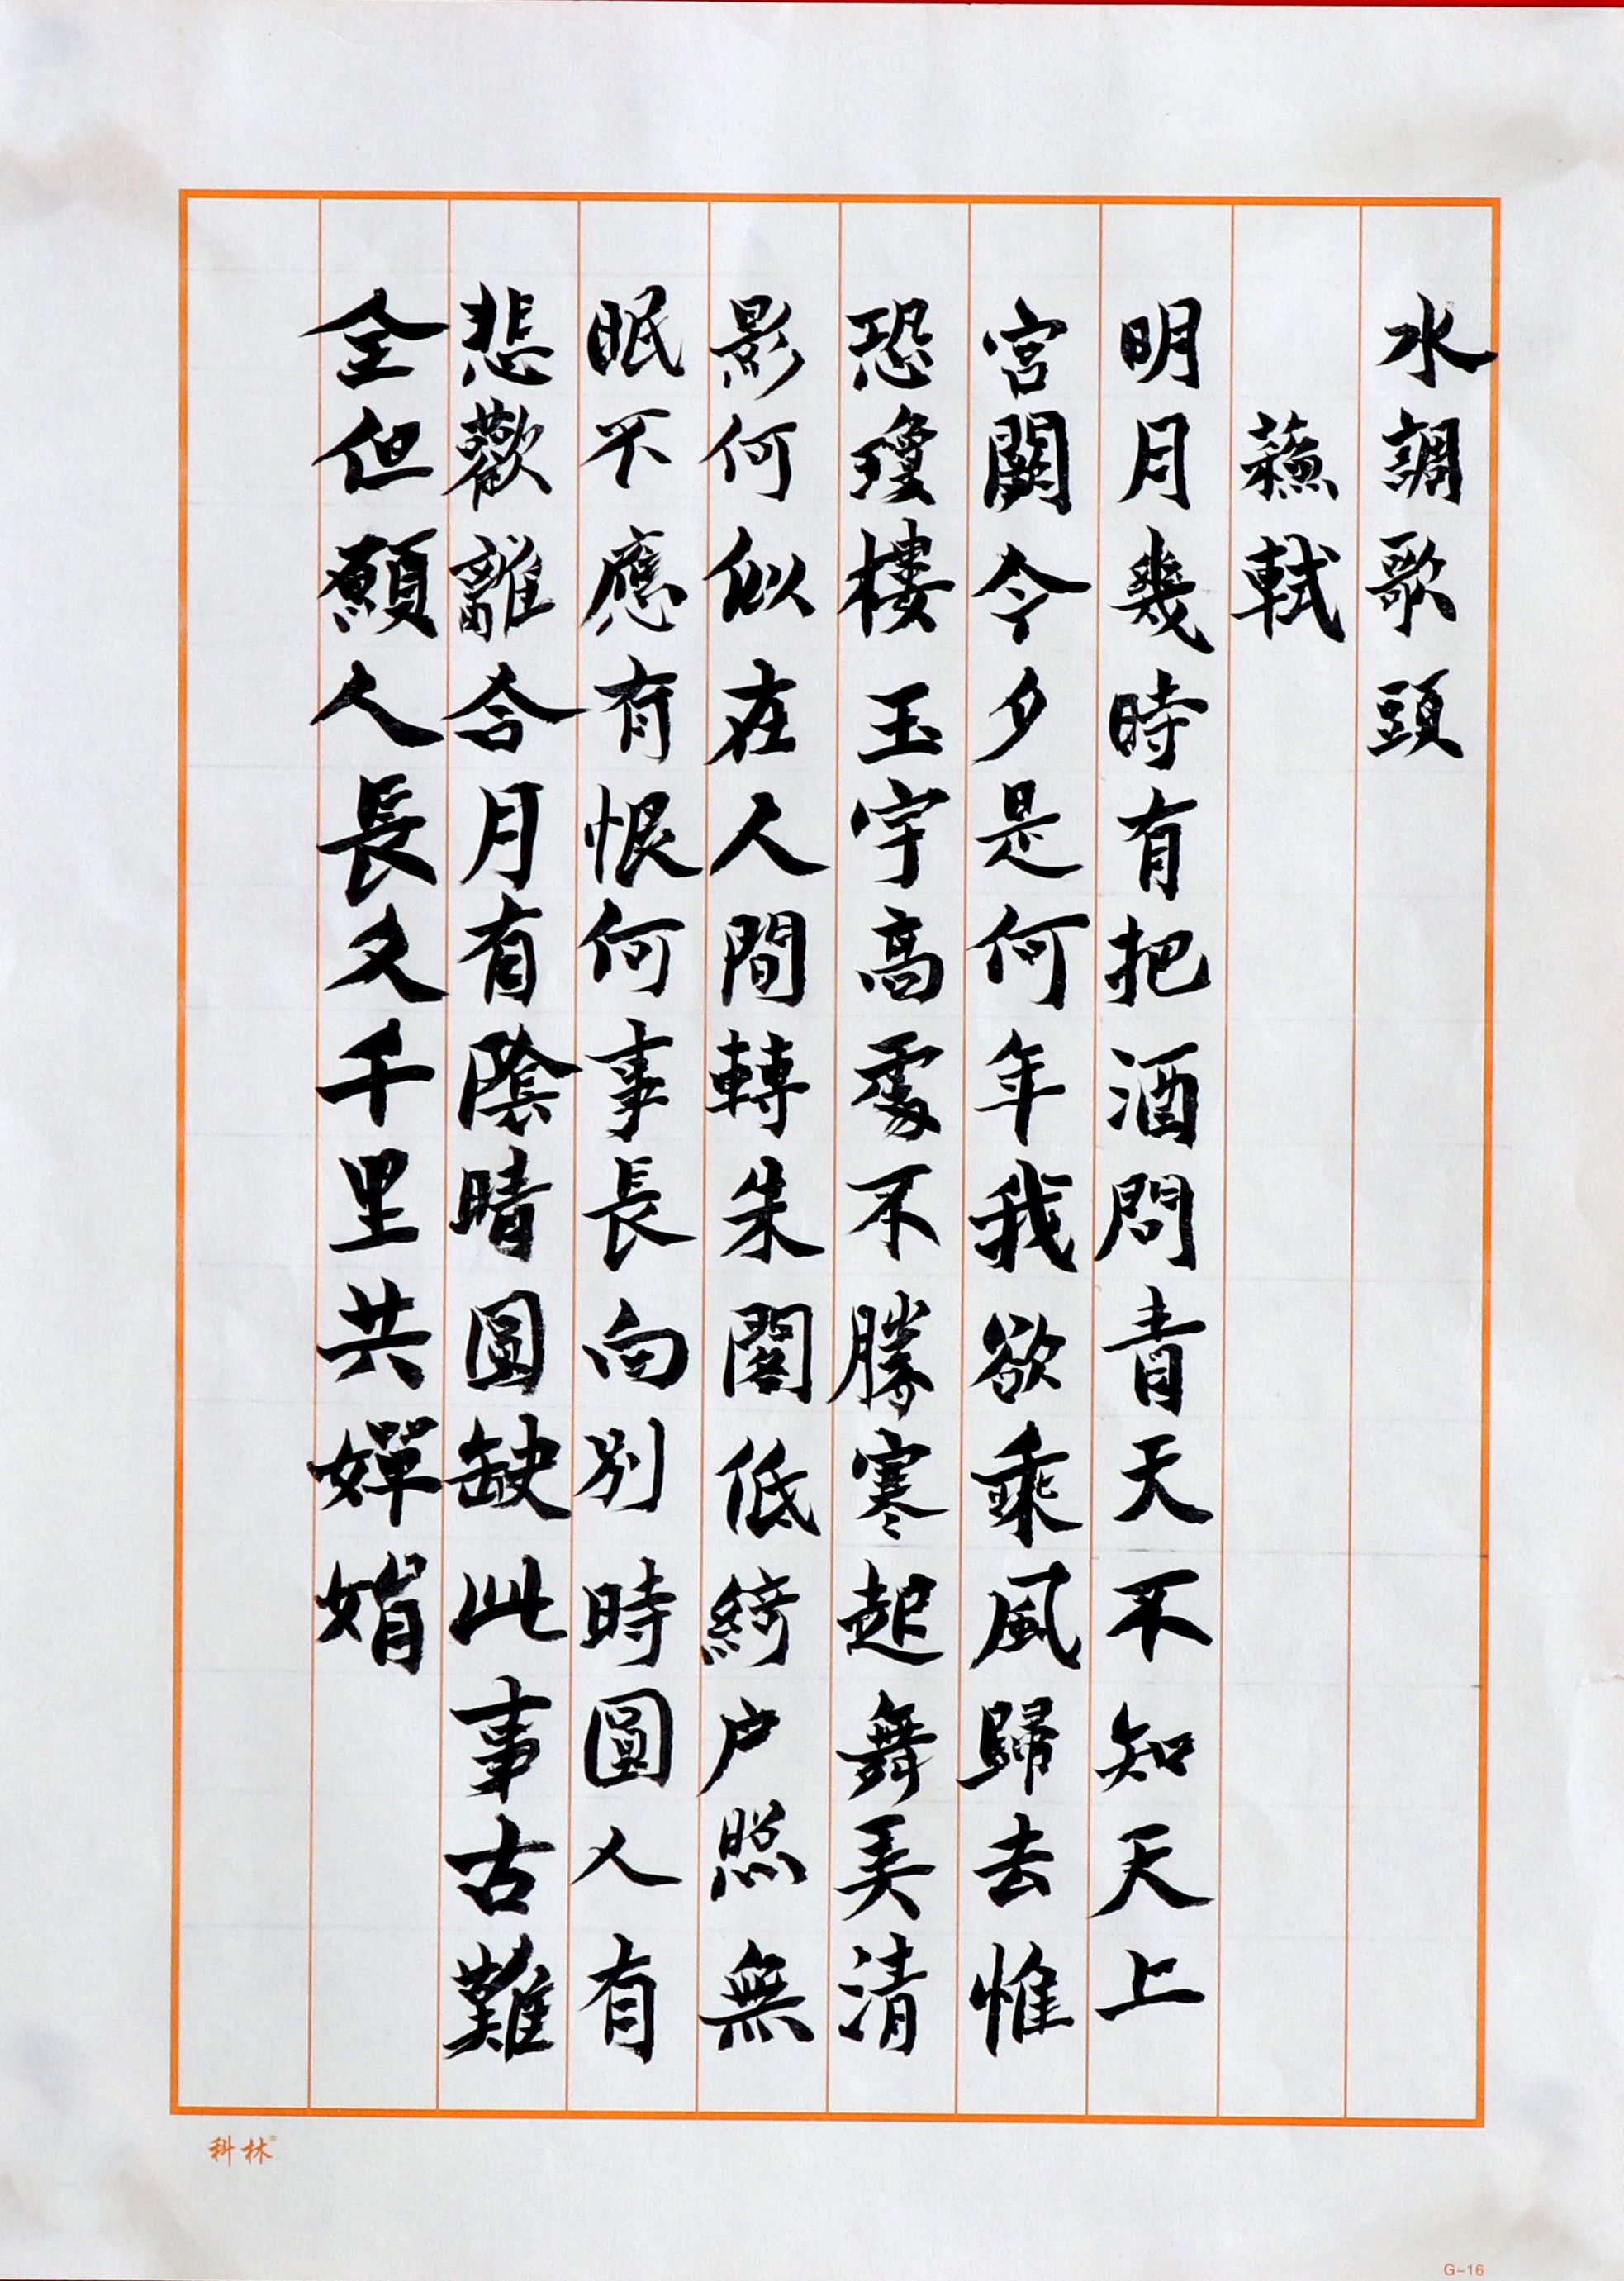 水調歌頭
蘇軾
明月幾時有把酒問青天不知天上
宮闕今夕是何年我欲乘風歸去惟
恐瓊樓玉宇高處不勝寒起舞弄清
影何似在人間轉朱閣低綺户照無
眠不應有恨何事長向别時圓人有
悲歡離合月有陰晴圓缺此事古難
全但願人長久千里共嬋娟
科林®
G-16